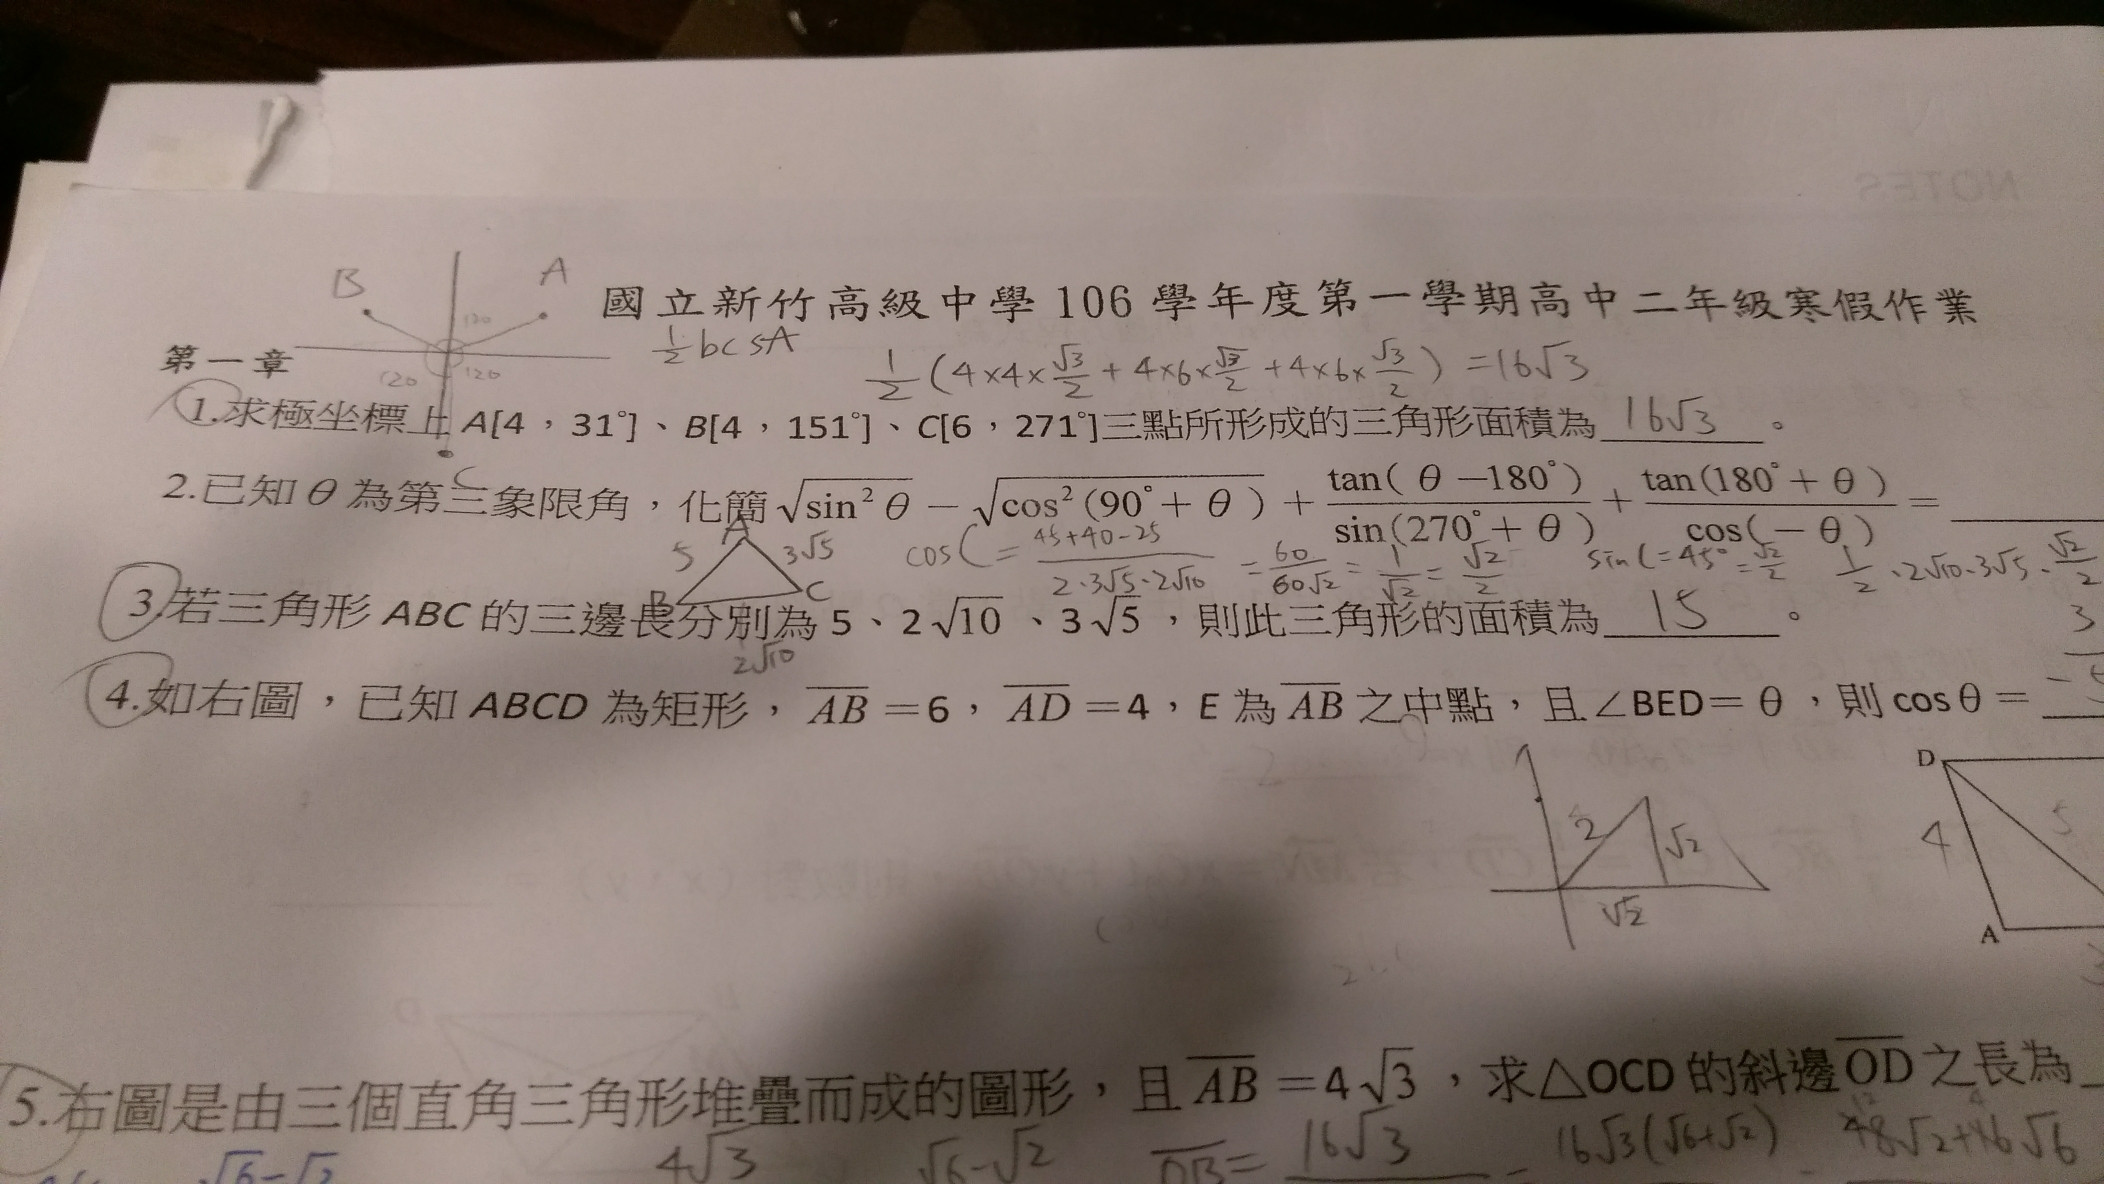 NOTES
B A
國立新竹高級中學 106 學年度第一學期高中二年級寒假作業
120
½bcsA
第一章
120 120
1/2 (4×4×√3/2 + 4×6×√3/2 + 4×6×√3/2) = 16√3
1.求極坐標上 A[4，31°]、B[4，151°]、C[6，271°]三點所形成的三角形面積為 16√3 。
C
2.已知 θ 為第三象限角，化簡 √(sin² θ) − √(cos² (90° + θ )) + tan( θ −180° )/sin(270° + θ ) + tan(180° + θ )/cos(− θ ) =
A
5 3√5
B C
cosC = (45+40-25)/(2·3√5·2√10) = 60/(60√2) = 1/√2 = √2/2
sinC=45°=√2/2 1/2·2√10·3√5·√2/2
3.若三角形 ABC 的三邊長分別為 5、2√10、3√5，則此三角形的面積為 15 。
2√10
3
4.如右圖，已知 ABCD 為矩形，AB =6，AD =4，E 為 AB 之中點，且∠BED= θ ，則 cos θ = -5
D
2 √2 4 5
√2
A
3
5.右圖是由三個直角三角形堆疊而成的圖形，且 AB =4√3，求△OCD 的斜邊 OD 之長為
12 4
√6-√2 4√3 √6-√2 OB= 16√3 = 16√3(√6+√2) 48√2+16√6